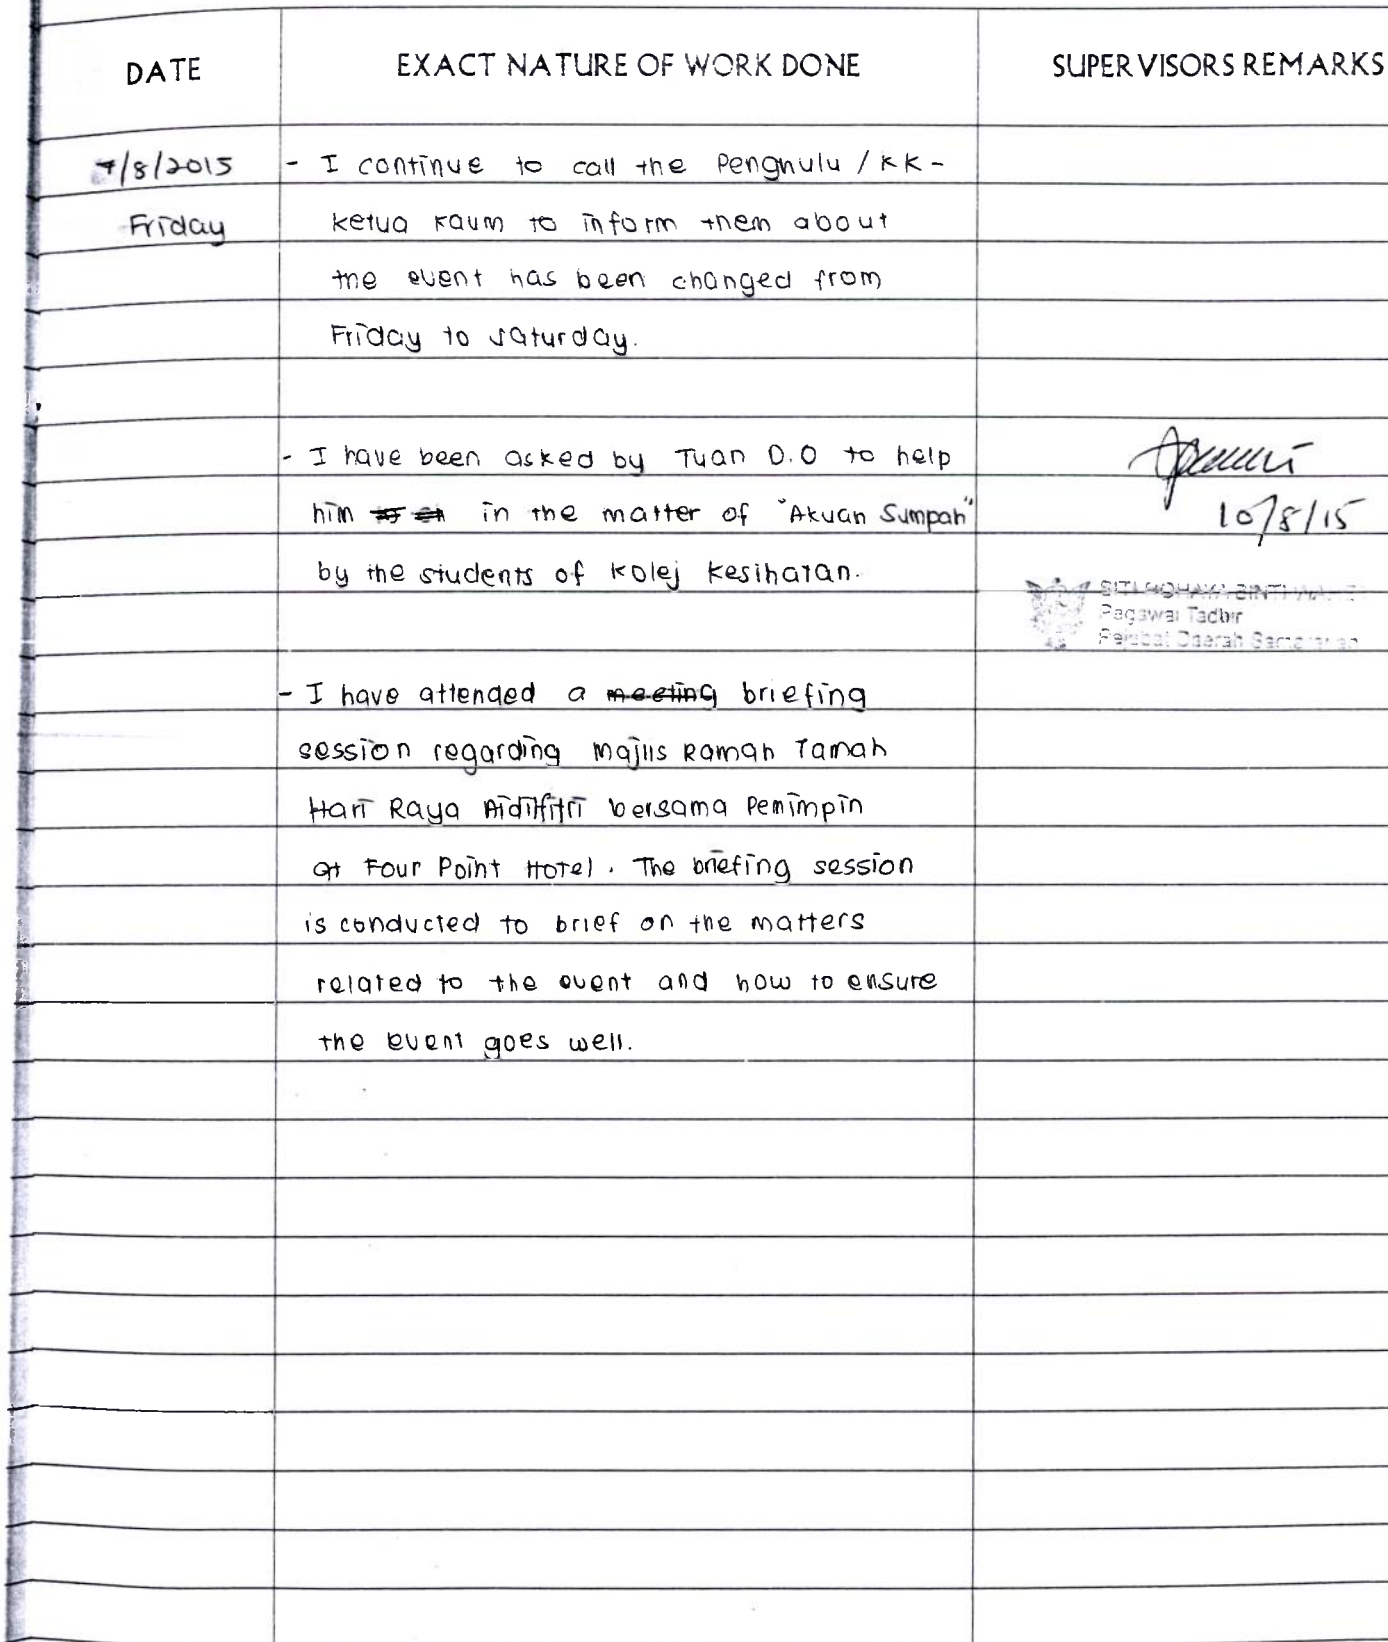 DATE EXACT NATURE OF WORK DONE SUPERVISORS REMARKS
7/8/2015 - I continue to call the Penghulu / KK -
Friday ketua kaum to inform them about
the event has been changed from
Friday to Saturday.
- I have been asked by Tuan D.O to help
him in the matter of "Akuan Sumpah"
by the students of Kolej Kesihatan.
10/8/15
SITI BINTI
Pegawai Tadbir
Pejabat Daerah Samarahan
- I have attended a meeting briefing
session regarding Majlis Ramah Tamah
Hari Raya Aidilfitri bersama Pemimpin
at Four Point Hotel. The briefing session
is conducted to brief on the matters
related to the event and how to ensure
the event goes well.